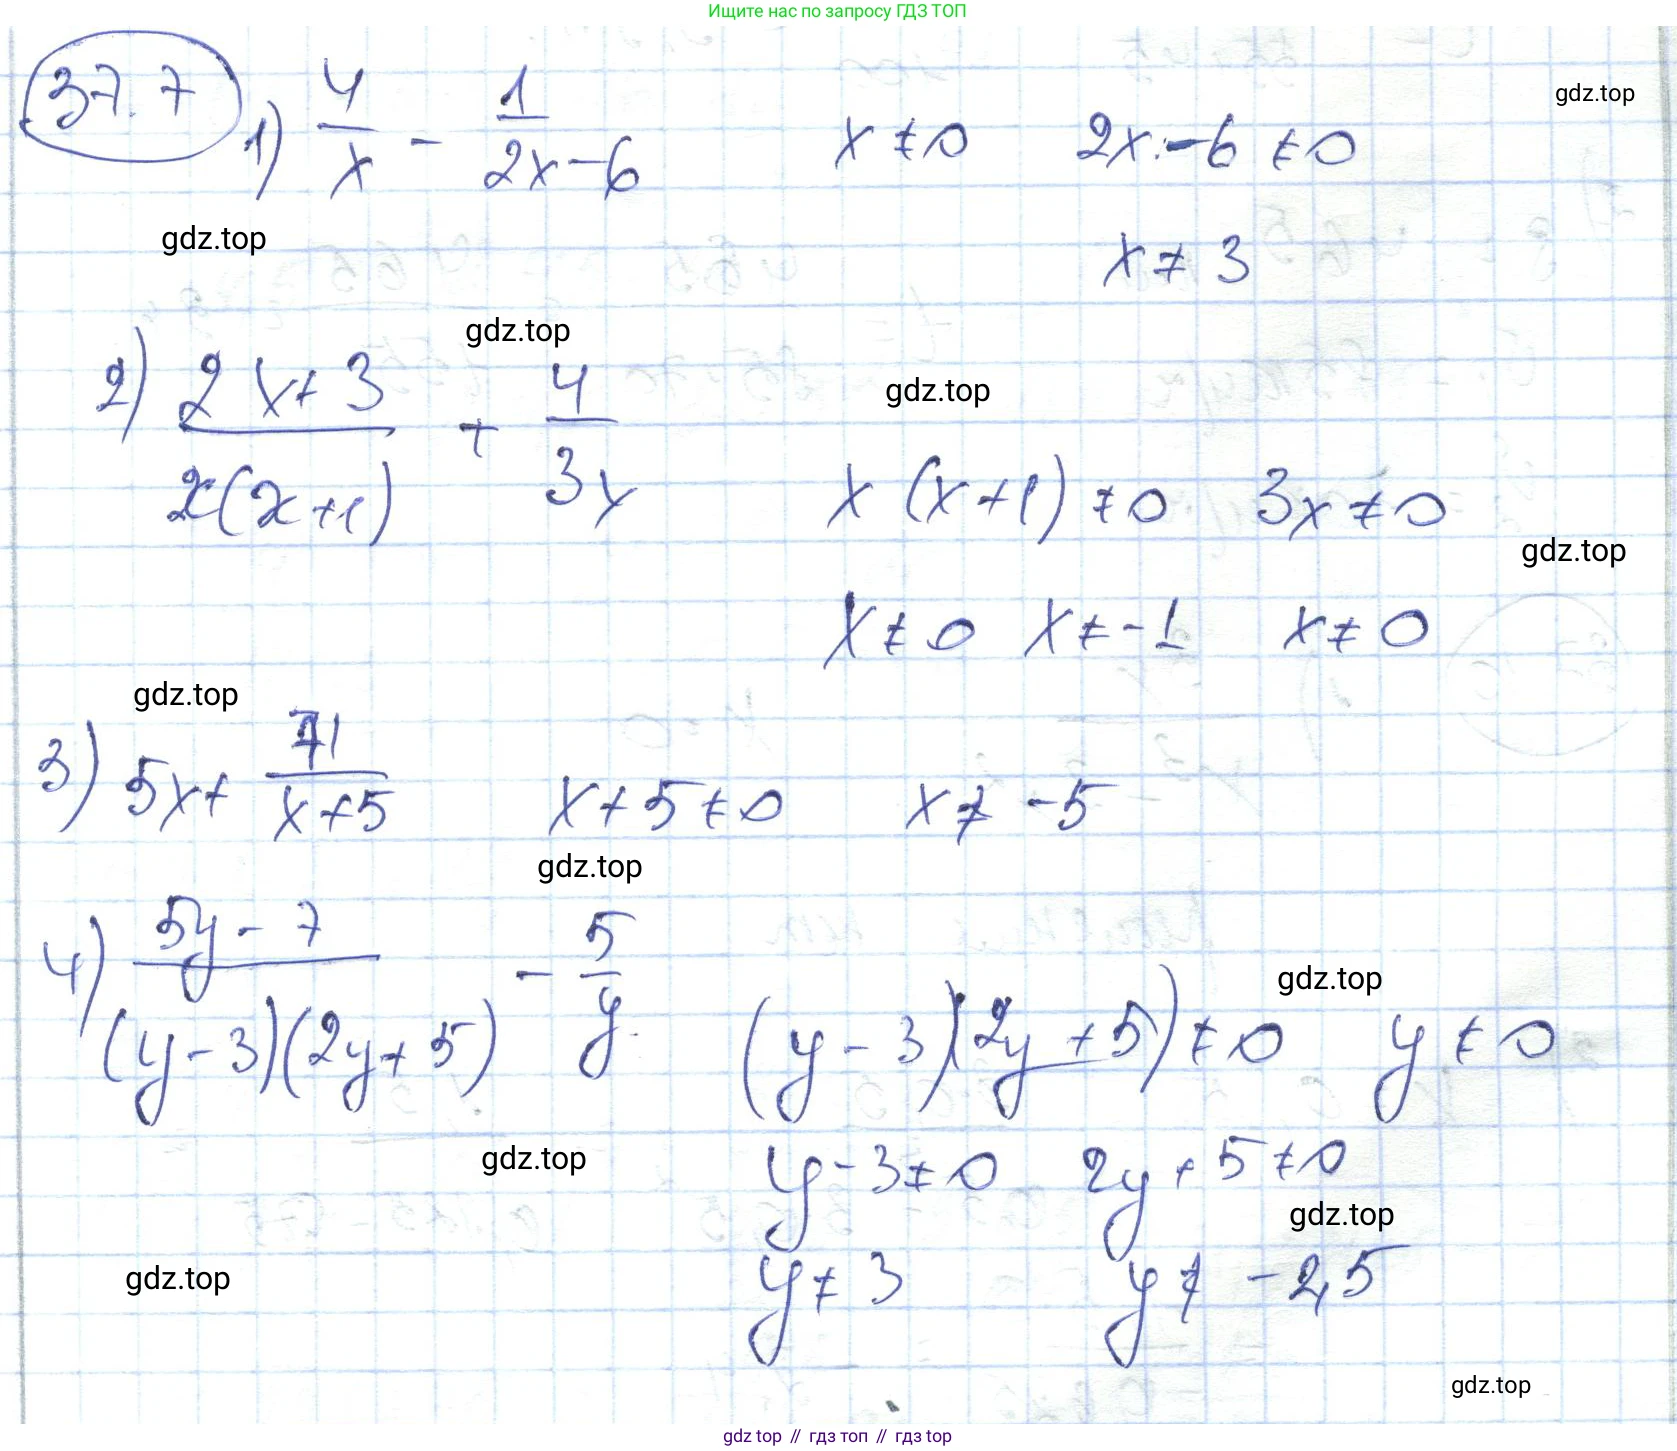 Ищите нас по запросу ГДЗ ТОП
37.7
gdz.top
1) 4/x - 1/(2x-6)   x ≠ 0   2x - 6 ≠ 0
gdz.top
x ≠ 3
gdz.top
gdz.top
2) (2x+3)/(x(x+1)) + 4/(3x)   x(x+1) ≠ 0   3x ≠ 0
gdz.top
x ≠ 0   x ≠ -1   x ≠ 0
gdz.top
3) 5x + 71/(x+5)   x + 5 ≠ 0   x ≠ -5
gdz.top
4) (5y - 7)/((y-3)(2y+5)) - 5/y   (y-3)(2y+5) ≠ 0   y ≠ 0
gdz.top
gdz.top
y - 3 ≠ 0   2y + 5 ≠ 0
gdz.top
gdz.top
y ≠ 3   y ≠ -2,5
gdz.top
gdz top // гдз топ // гдз top